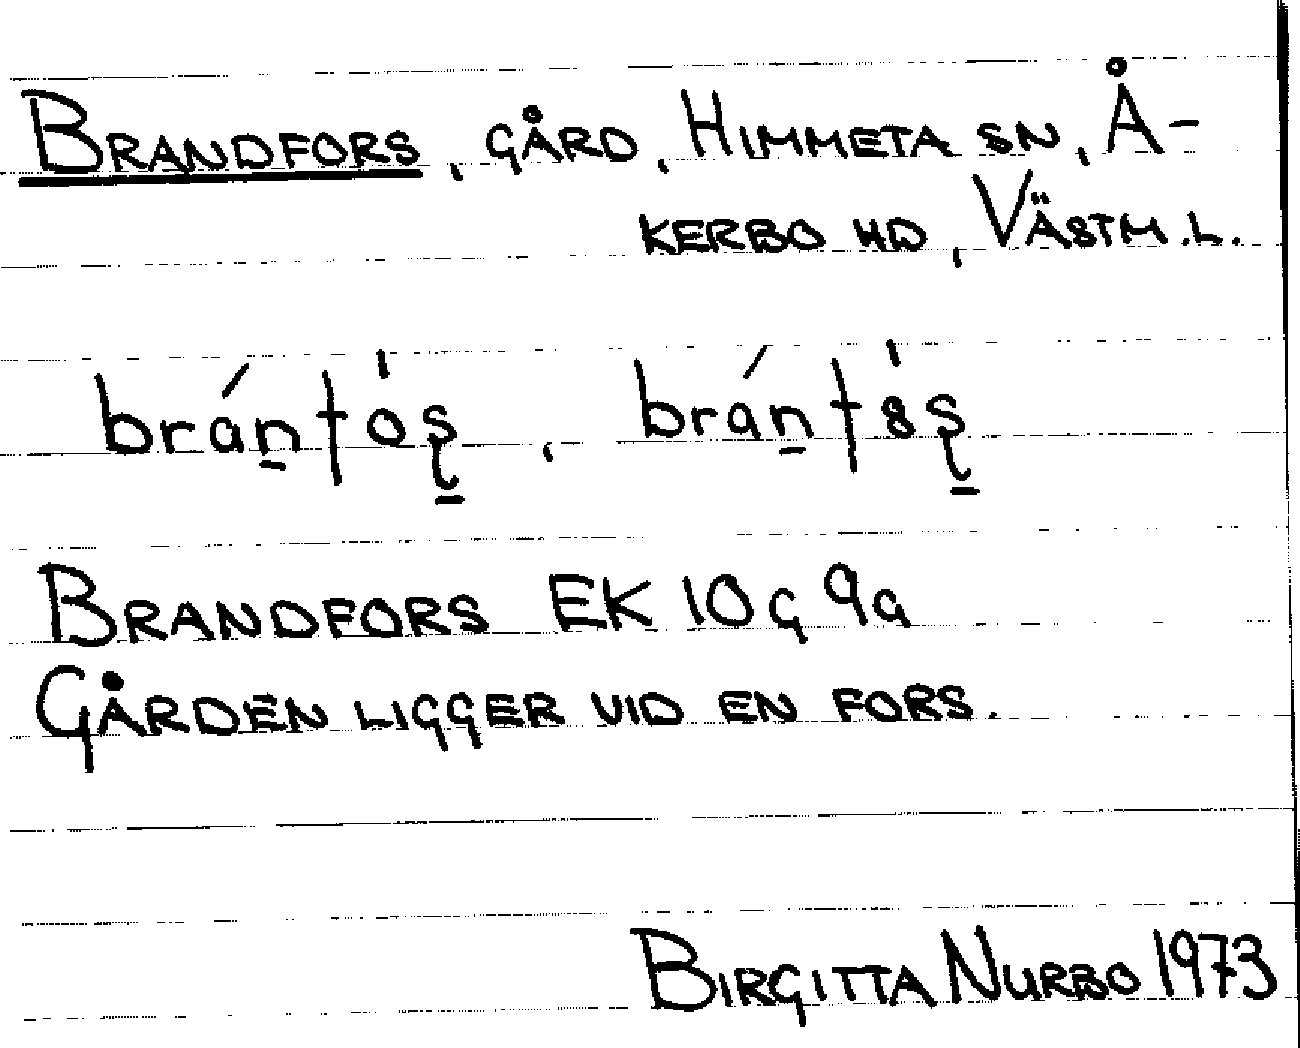 BRANDFORS, GÅRD, HIMMETA SN, Å-
KERBO HD, VÄSTM.L.
BRANDFORS EK 10G 9a
GÅRDEN LIGGER VID EN FORS.
BIRGITTA NURBO 1973